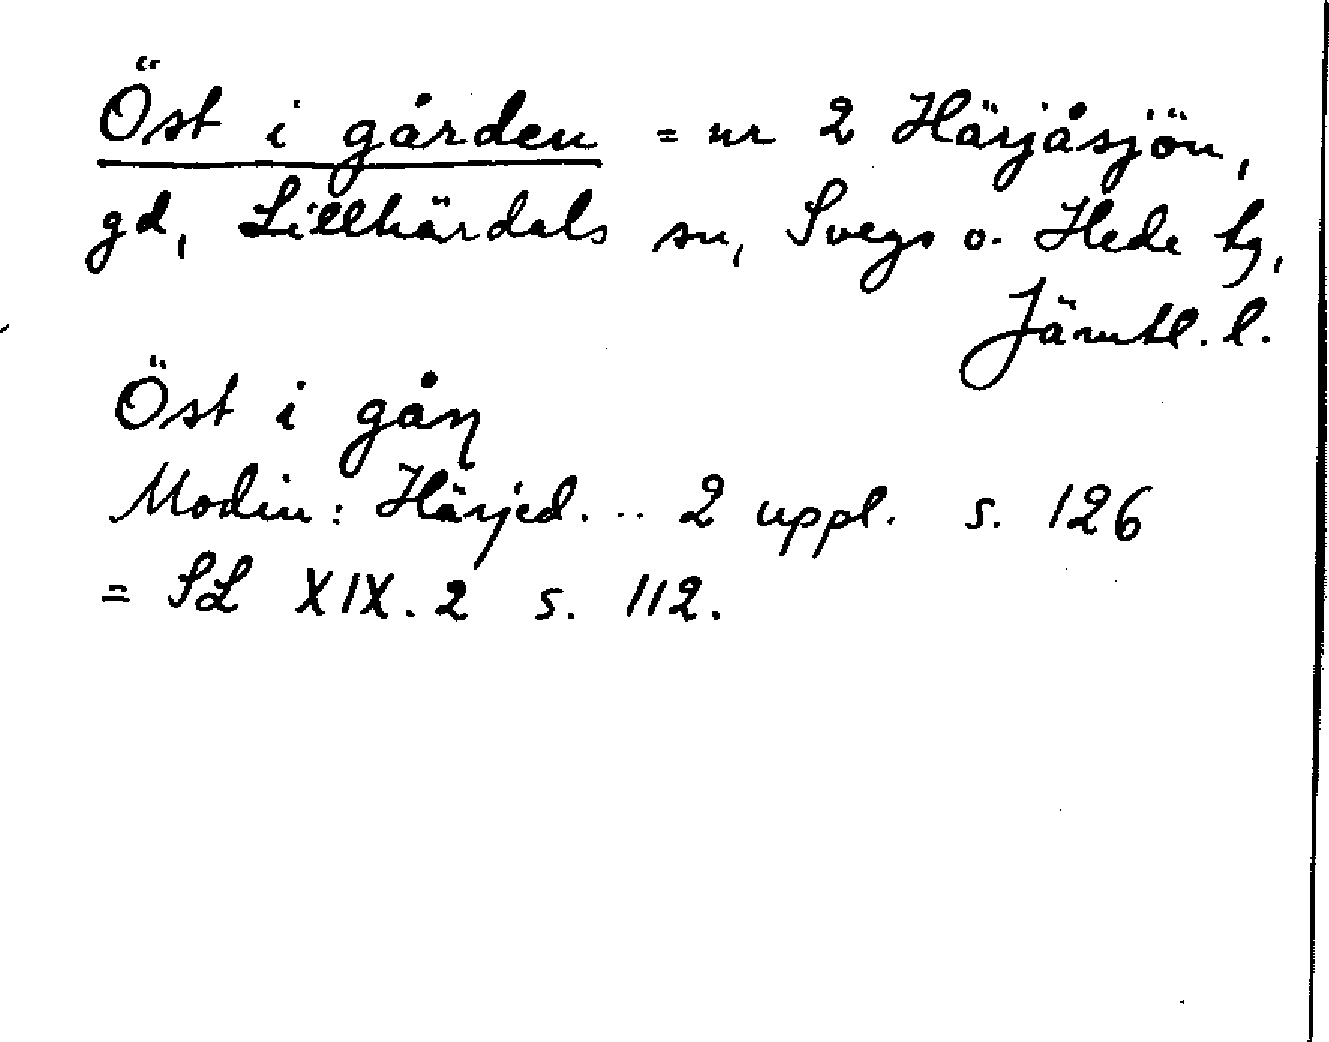 Öst i gården = nr 2 Härjåsjön,
gd, Lillhärdals sn, Svegs o. Hede tg,
Jämtl. l.
Öst i gåɳ
Modin: Härjed. .. 2 uppl. s. 126
= SL XIX. 2 s. 112.